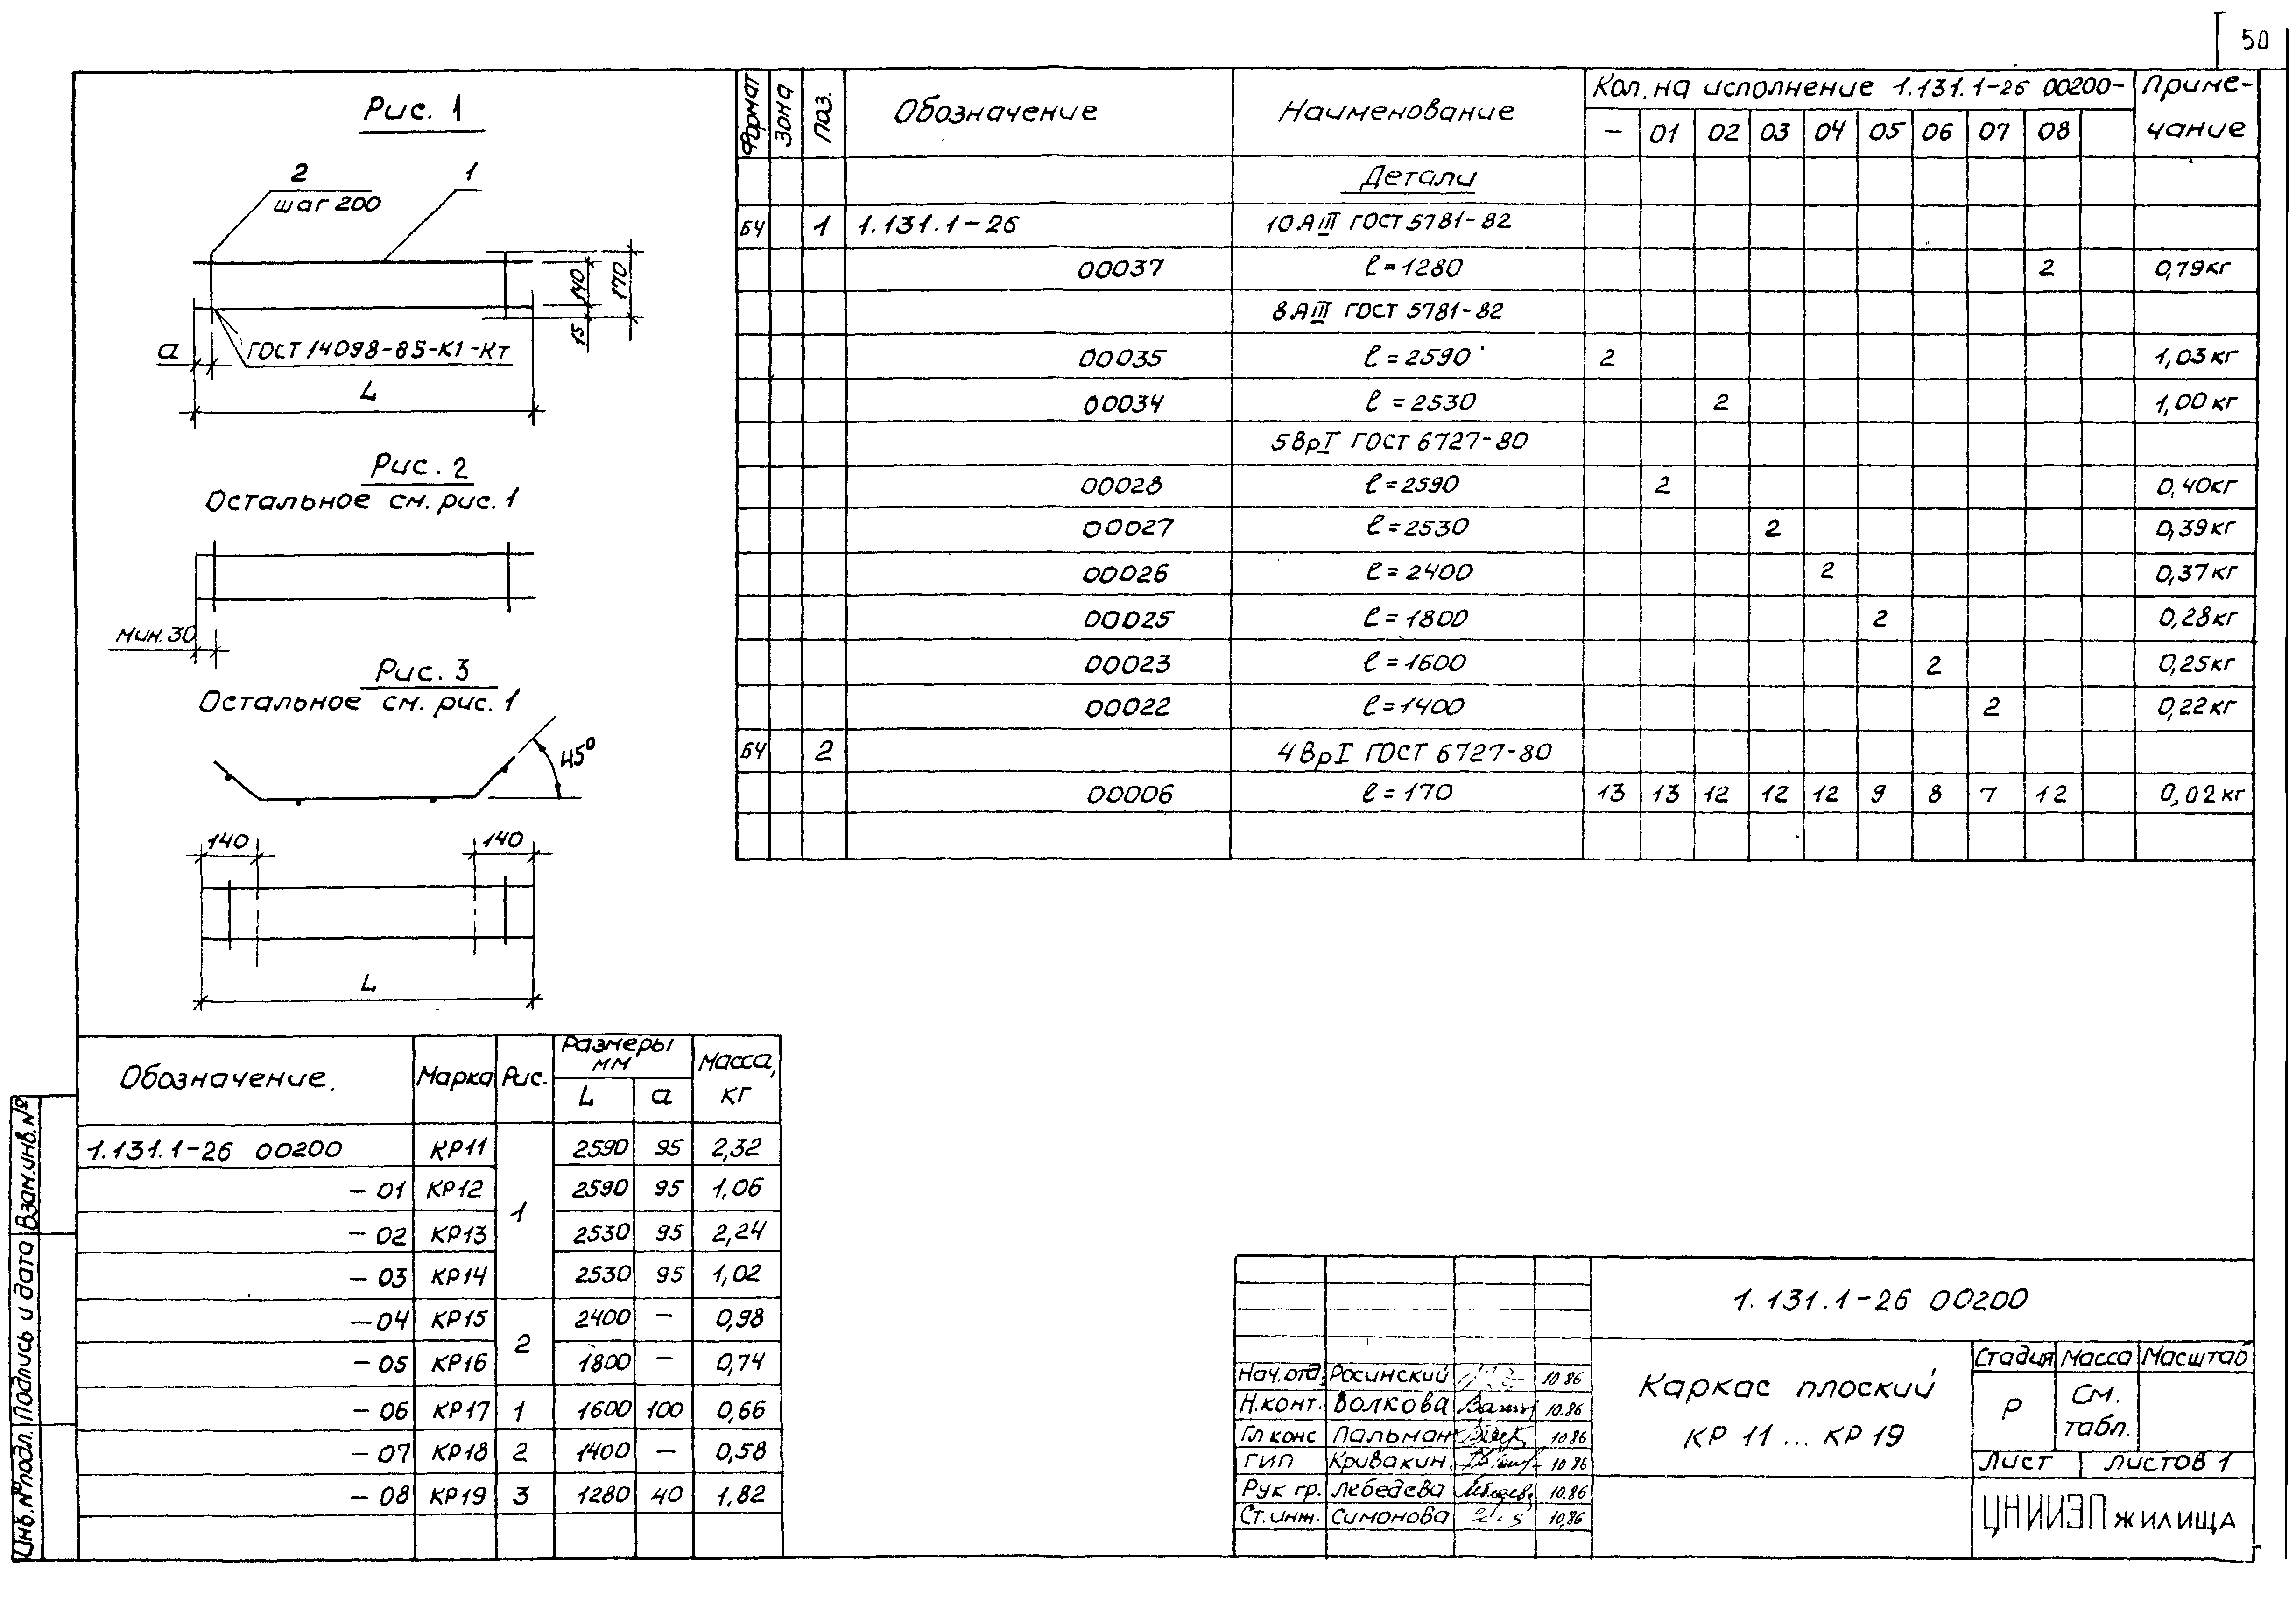 50
Рис. 1
2
шаг 200
1
140
170
15
а
ГОСТ 14098-85-К1-Кт
L
Рис. 2
Остальное см. рис. 1
мин. 30
Рис. 3
Остальное см. рис. 1
45°
140 140
L
Формат Зона Поз. Обозначение Наименование Кол. на исполнение 1.131.1-26 00200- Приме-
чание
— 01 02 03 04 05 06 07 08
Детали
БЧ 1 1.131.1-26 10 АIII ГОСТ 5781-82
00037 ℓ=1280 2 0,79кг
8 АIII ГОСТ 5781-82
00035 ℓ=2590 2 1,03кг
00034 ℓ=2530 2 1,00кг
5ВрI ГОСТ 6727-80
00028 ℓ=2590 2 0,40кг
00027 ℓ=2530 2 0,39кг
00026 ℓ=2400 2 0,37кг
00025 ℓ=1800 2 0,28кг
00023 ℓ=1600 2 0,25кг
00022 ℓ=1400 2 0,22кг
БЧ 2 4ВрI ГОСТ 6727-80
00006 ℓ=170 13 13 12 12 12 9 8 7 12 0,02кг
Обозначение. Марка Рис. Размеры мм Масса, кг
L а
1.131.1-26 00200 КР11 1 2590 95 2,32
- 01 КР12 2590 95 1,06
- 02 КР13 2530 95 2,24
- 03 КР14 2530 95 1,02
- 04 КР15 2 2400 — 0,98
- 05 КР16 1800 — 0,74
- 06 КР17 1 1600 100 0,66
- 07 КР18 2 1400 — 0,58
- 08 КР19 3 1280 40 1,82
Инв.№подл. Подпись и дата Взам.инв.№
1.131.1-26 00200
Нач.отд. Росинский 10.86
Н.конт. Волкова 10.86
Гл конс Пальман 10.86
ГИП Кривакин 10.86
Рук гр. Лебедева 10.86
Ст.инж. Симонова 10,86
Каркас плоский
КР 11 ... КР 19
Стадия Масса Масштаб
Р См. табл.
Лист Листов 1
ЦНИИЭП жилища